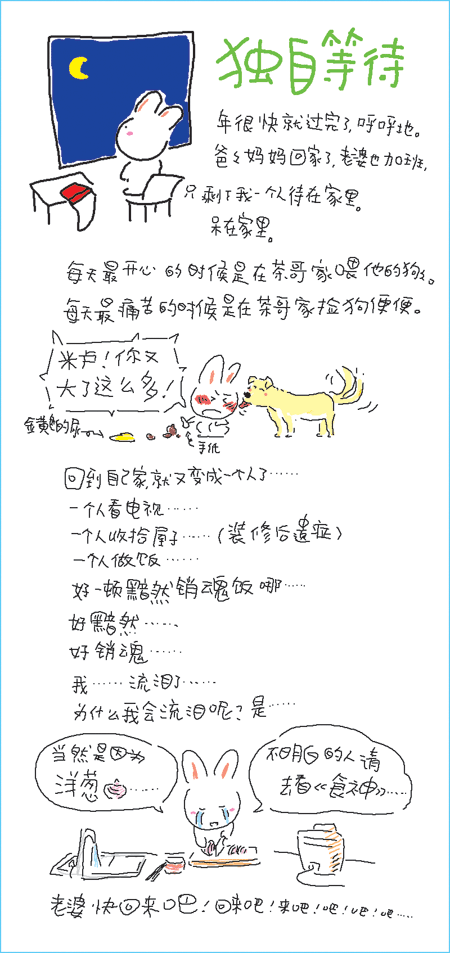 独自等待
年很快就过完了,呼呼地。
爸々妈妈回家了,老婆也加班,
只剩下我一个人待在家里。
呆在家里。
每天最开心的时候是在茶哥家喂他的狗々。
每天最痛苦的时候是在茶哥家捡狗便便。
米卢!你又
大了这么多!
的尿
手纸
回到自己家,就又变成一个人了……
一个人看电视……
一个人收拾屋子……(装修后遗症)
一个人做饭……
好一顿黯然销魂饭哪……
好黯然……
好销魂……
我……流泪了……
为什么我会流泪呢?是……
当然是因为
洋葱……
不明白的人请
去看《食神》……
老婆快回来吧!回来吧!来吧!吧!吧!吧……